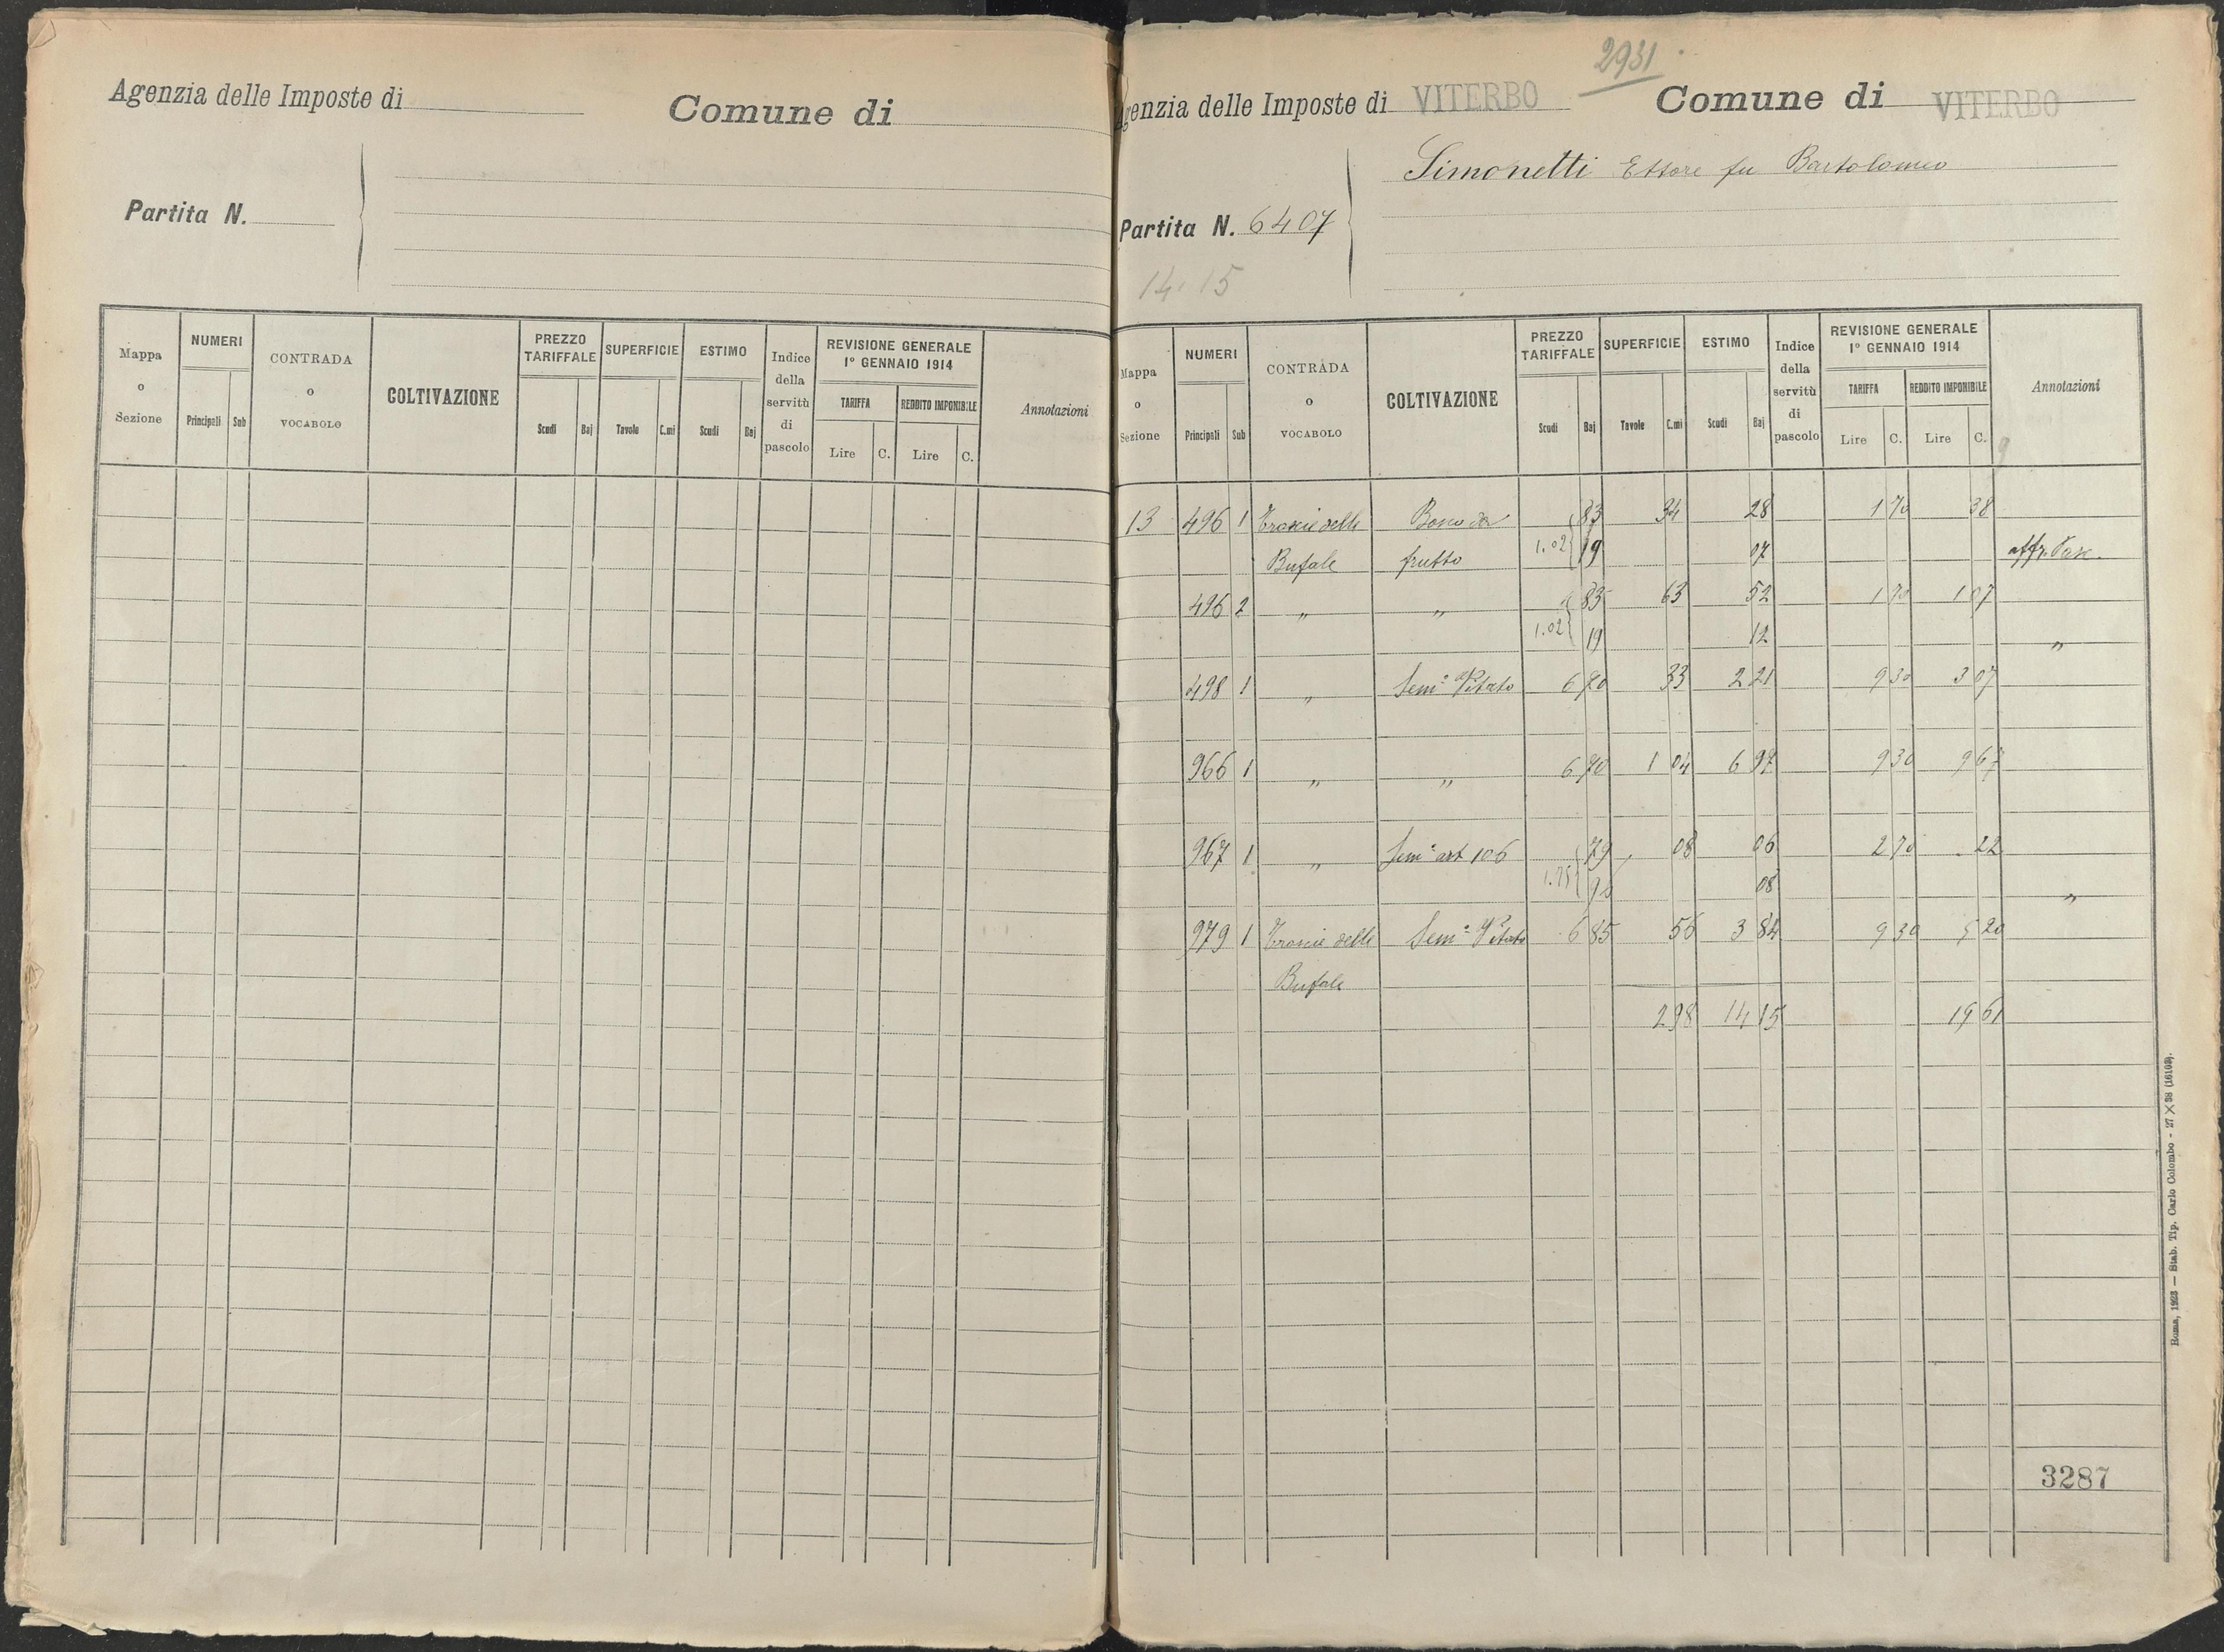 Agenzia delle Imposte di
Comune di
Partita N.
Mappa o Sezione
NUMERI
Principali Sub
CONTRADA o VOCABOLO
COLTIVAZIONE
PREZZO TARIFFALE
Scudi Baj
SUPERFICIE
Tavole C.mi
ESTIMO
Scudi Baj
Indice della servitù di pascolo
REVISIONE GENERALE 1° GENNAIO 1914
TARIFFA
Lire C.
REDDITO IMPONIBILE
Lire C.
Annotazioni
2931
genzia delle Imposte di VITERBO
Comune di VITERBO
Simonetti Ettore fu Bartolomeo
Partita N. 6407
14.15
Mappa o Sezione
NUMERI
Principali Sub
CONTRADA o VOCABOLO
COLTIVAZIONE
PREZZO TARIFFALE
Scudi Baj
SUPERFICIE
Tavole C.mi
ESTIMO
Scudi Baj
Indice della servitù di pascolo
REVISIONE GENERALE 1° GENNAIO 1914
TARIFFA
Lire C.
REDDITO IMPONIBILE
Lire C.
Annotazioni
13 496 1 delle da 83 34 28 1 70 38
Bufale frutto 1.02 19 07
496 2 " " 83 63 52 1 70 1 07
1.02 19 12 "
498 1 " Sem° Vitato 6 70 33 2 21 9 30 3 07
966 1 " " 6 70 1 04 6 97 9 30 9 67
967 1 " Sem° art 106 79 08 06 2 70 22
08 "
979 1 delle Sem° Vitato 6 85 56 3 84 9 30 5 20
Bufale
2 98 14 15 19 61
3287
Roma, 1923 — Stab. Tip. Carlo Colombo - 27 × 38 (16103).